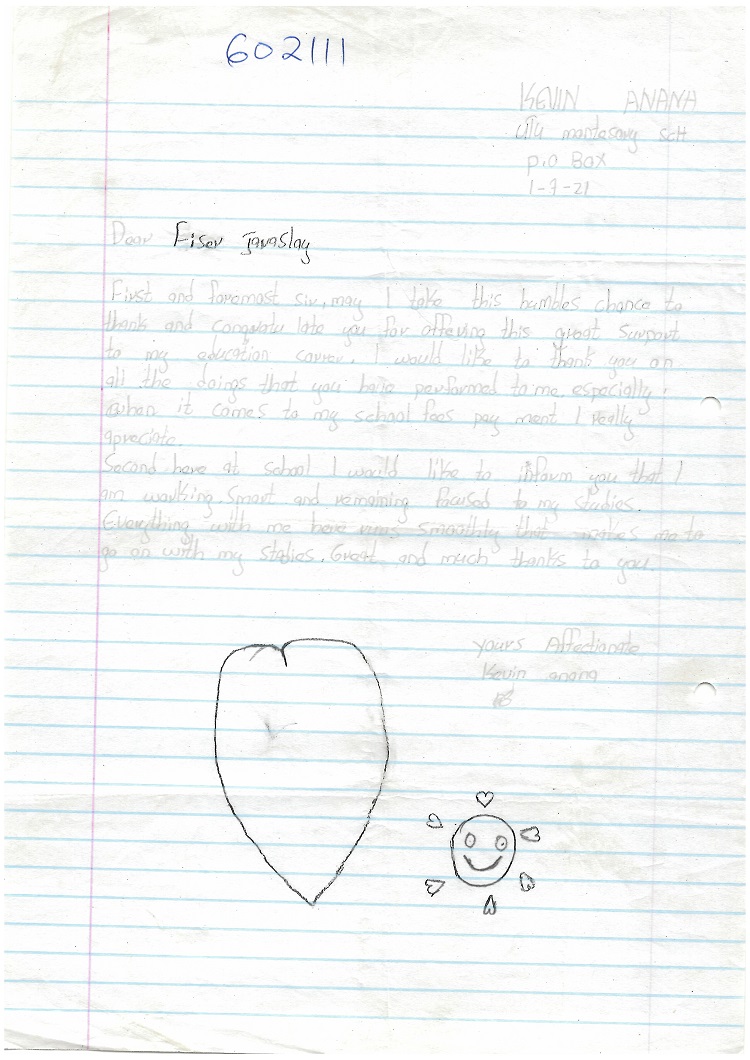 602111
KEVIN ANANA
mantasory SCH
P.O BOX
1-7-21
Dear Fiser Jaraslay
First and foremost sir, may I take this humbles chance to
thank and congratu late you for offering this great support
to my education carrer. I would like to thank you on
all the doings that you have performed to me especially
when it comes to my school fees pay ment I really
apreciate.
Second here at school I would like to inform you that I
am working smart and remaining focused to my studies.
Everything with me here runs smoothly that makes me to
go on with my stadies. Great and much thanks to you.
yours Affectionate
Kevin anana